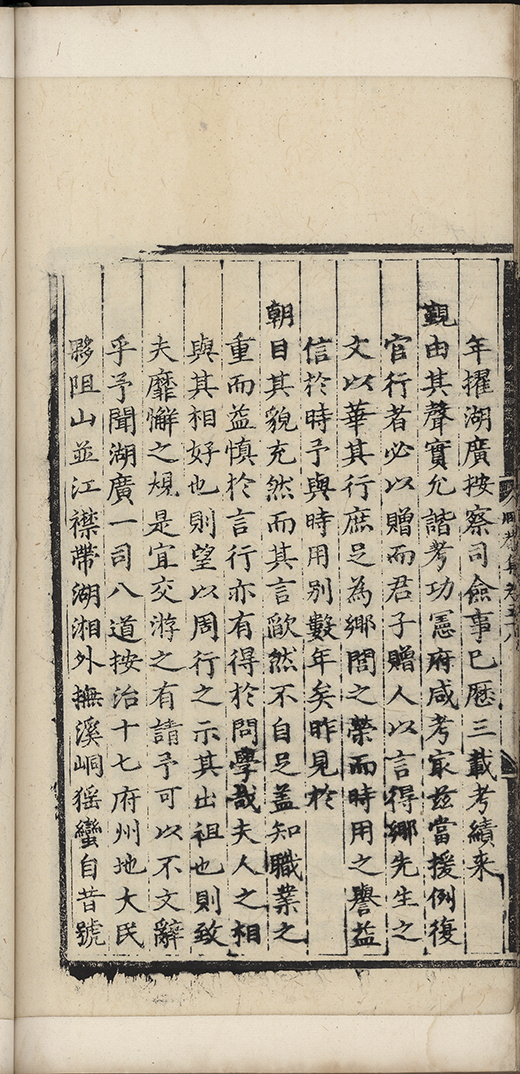 年擢湖廣按察司僉事已歷三載考績來
覲由其聲實允諧考功憲府咸考冣兹當援例復
官行者必以贈而君子贈人以言得鄉先生之
文以華其行庶足為鄉閭之榮而時用之譽益
信於時予與時用别數年矣昨見於
朝目其貌充然而其言歉然不自足盖知職業之
重而益慎於言行亦有得於問學哉夫人之相
與其相好也則望以周行之示其出祖也則致
夫靡懈之規是宜交游之有請予可以不文辭
乎予聞湖廣一司八道按治十七府州地大民
夥阻山並江襟帶湖湘外撫溪峒猺蠻自昔號